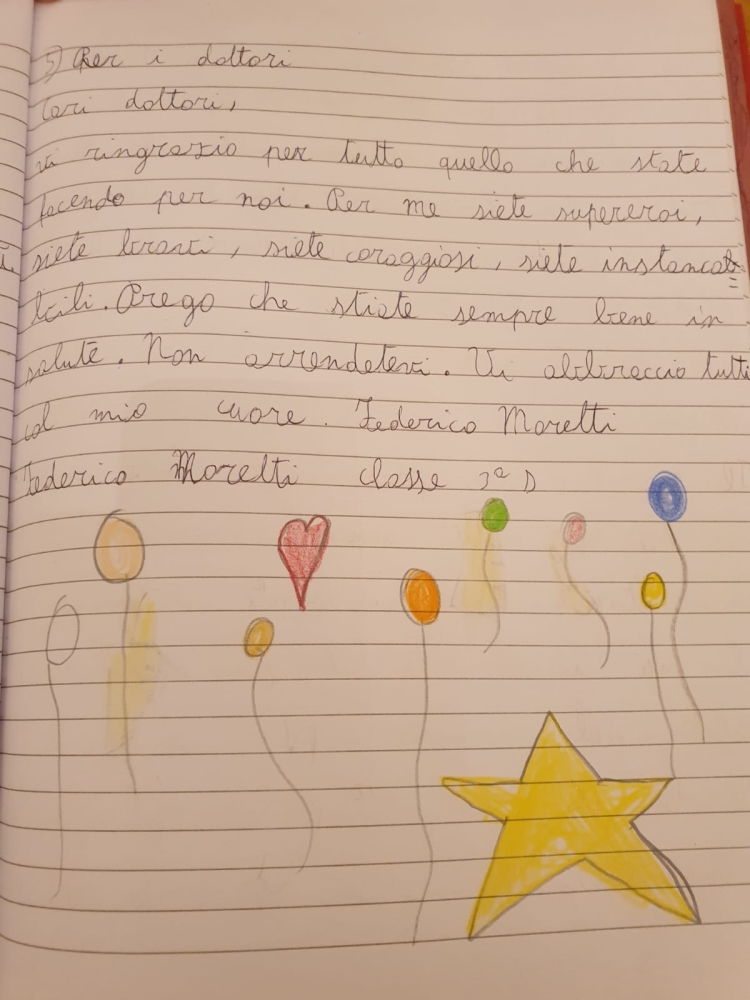 5) Per i dottori
Cari dottori,
vi ringrazio per tutto quello che state
facendo per noi. Per me siete supereroi,
siete bravi, siete coraggiosi, siete instanca
bili. Prego che stiate sempre bene in
salute. Non arrendetevi. Vi abbraccio tutti
col mio cuore. Federico Moretti
Federico Moretti classe 3ª D